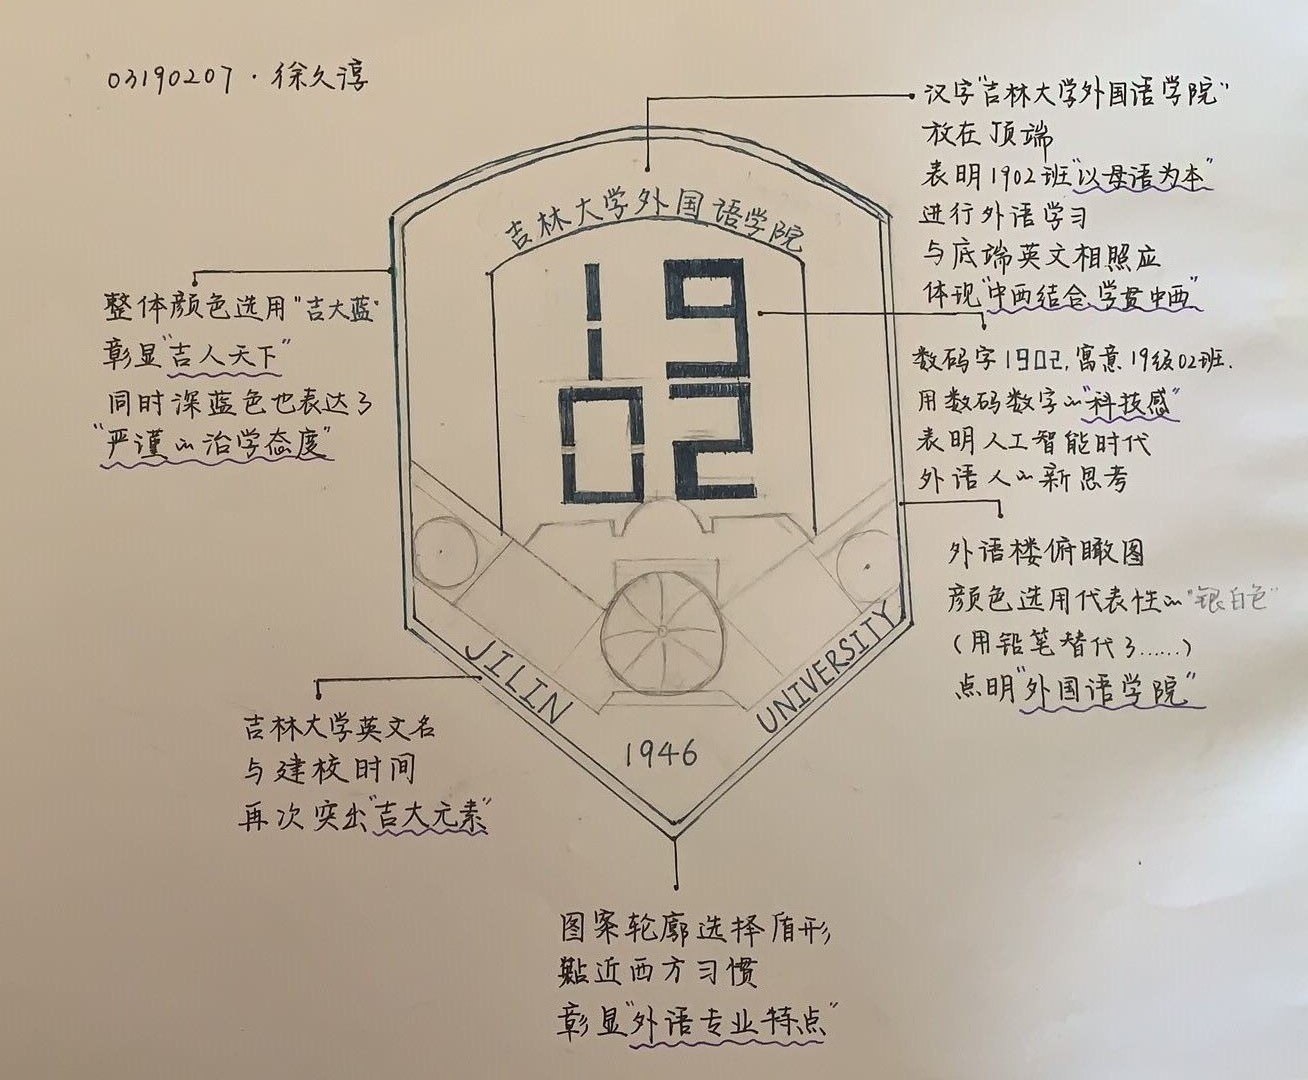 03190207·徐久淳
汉字"吉林大学外国语学院"
放在顶端
表明1902班"以母语为本"
进行外语学习
与底端英文相照应
体现"中西结合,学贯中西"
吉林大学外国语学院
19
02
整体颜色选用"吉大蓝"
彰显"吉人天下"
同时深蓝色也表达了
"严谨的治学态度"
数码字1902,寓意19级02班.
用数码数字的"科技感"
表明人工智能时代
外语人的新思考
外语楼俯瞰图
颜色选用代表性的"银白色"
(用铅笔替代了......)
点明"外国语学院"
JILIN
UNIVERSITY
1946
吉林大学英文名
与建校时间
再次突出"吉大元素"
图案轮廓选择盾形
贴近西方习惯
彰显"外语专业特点"